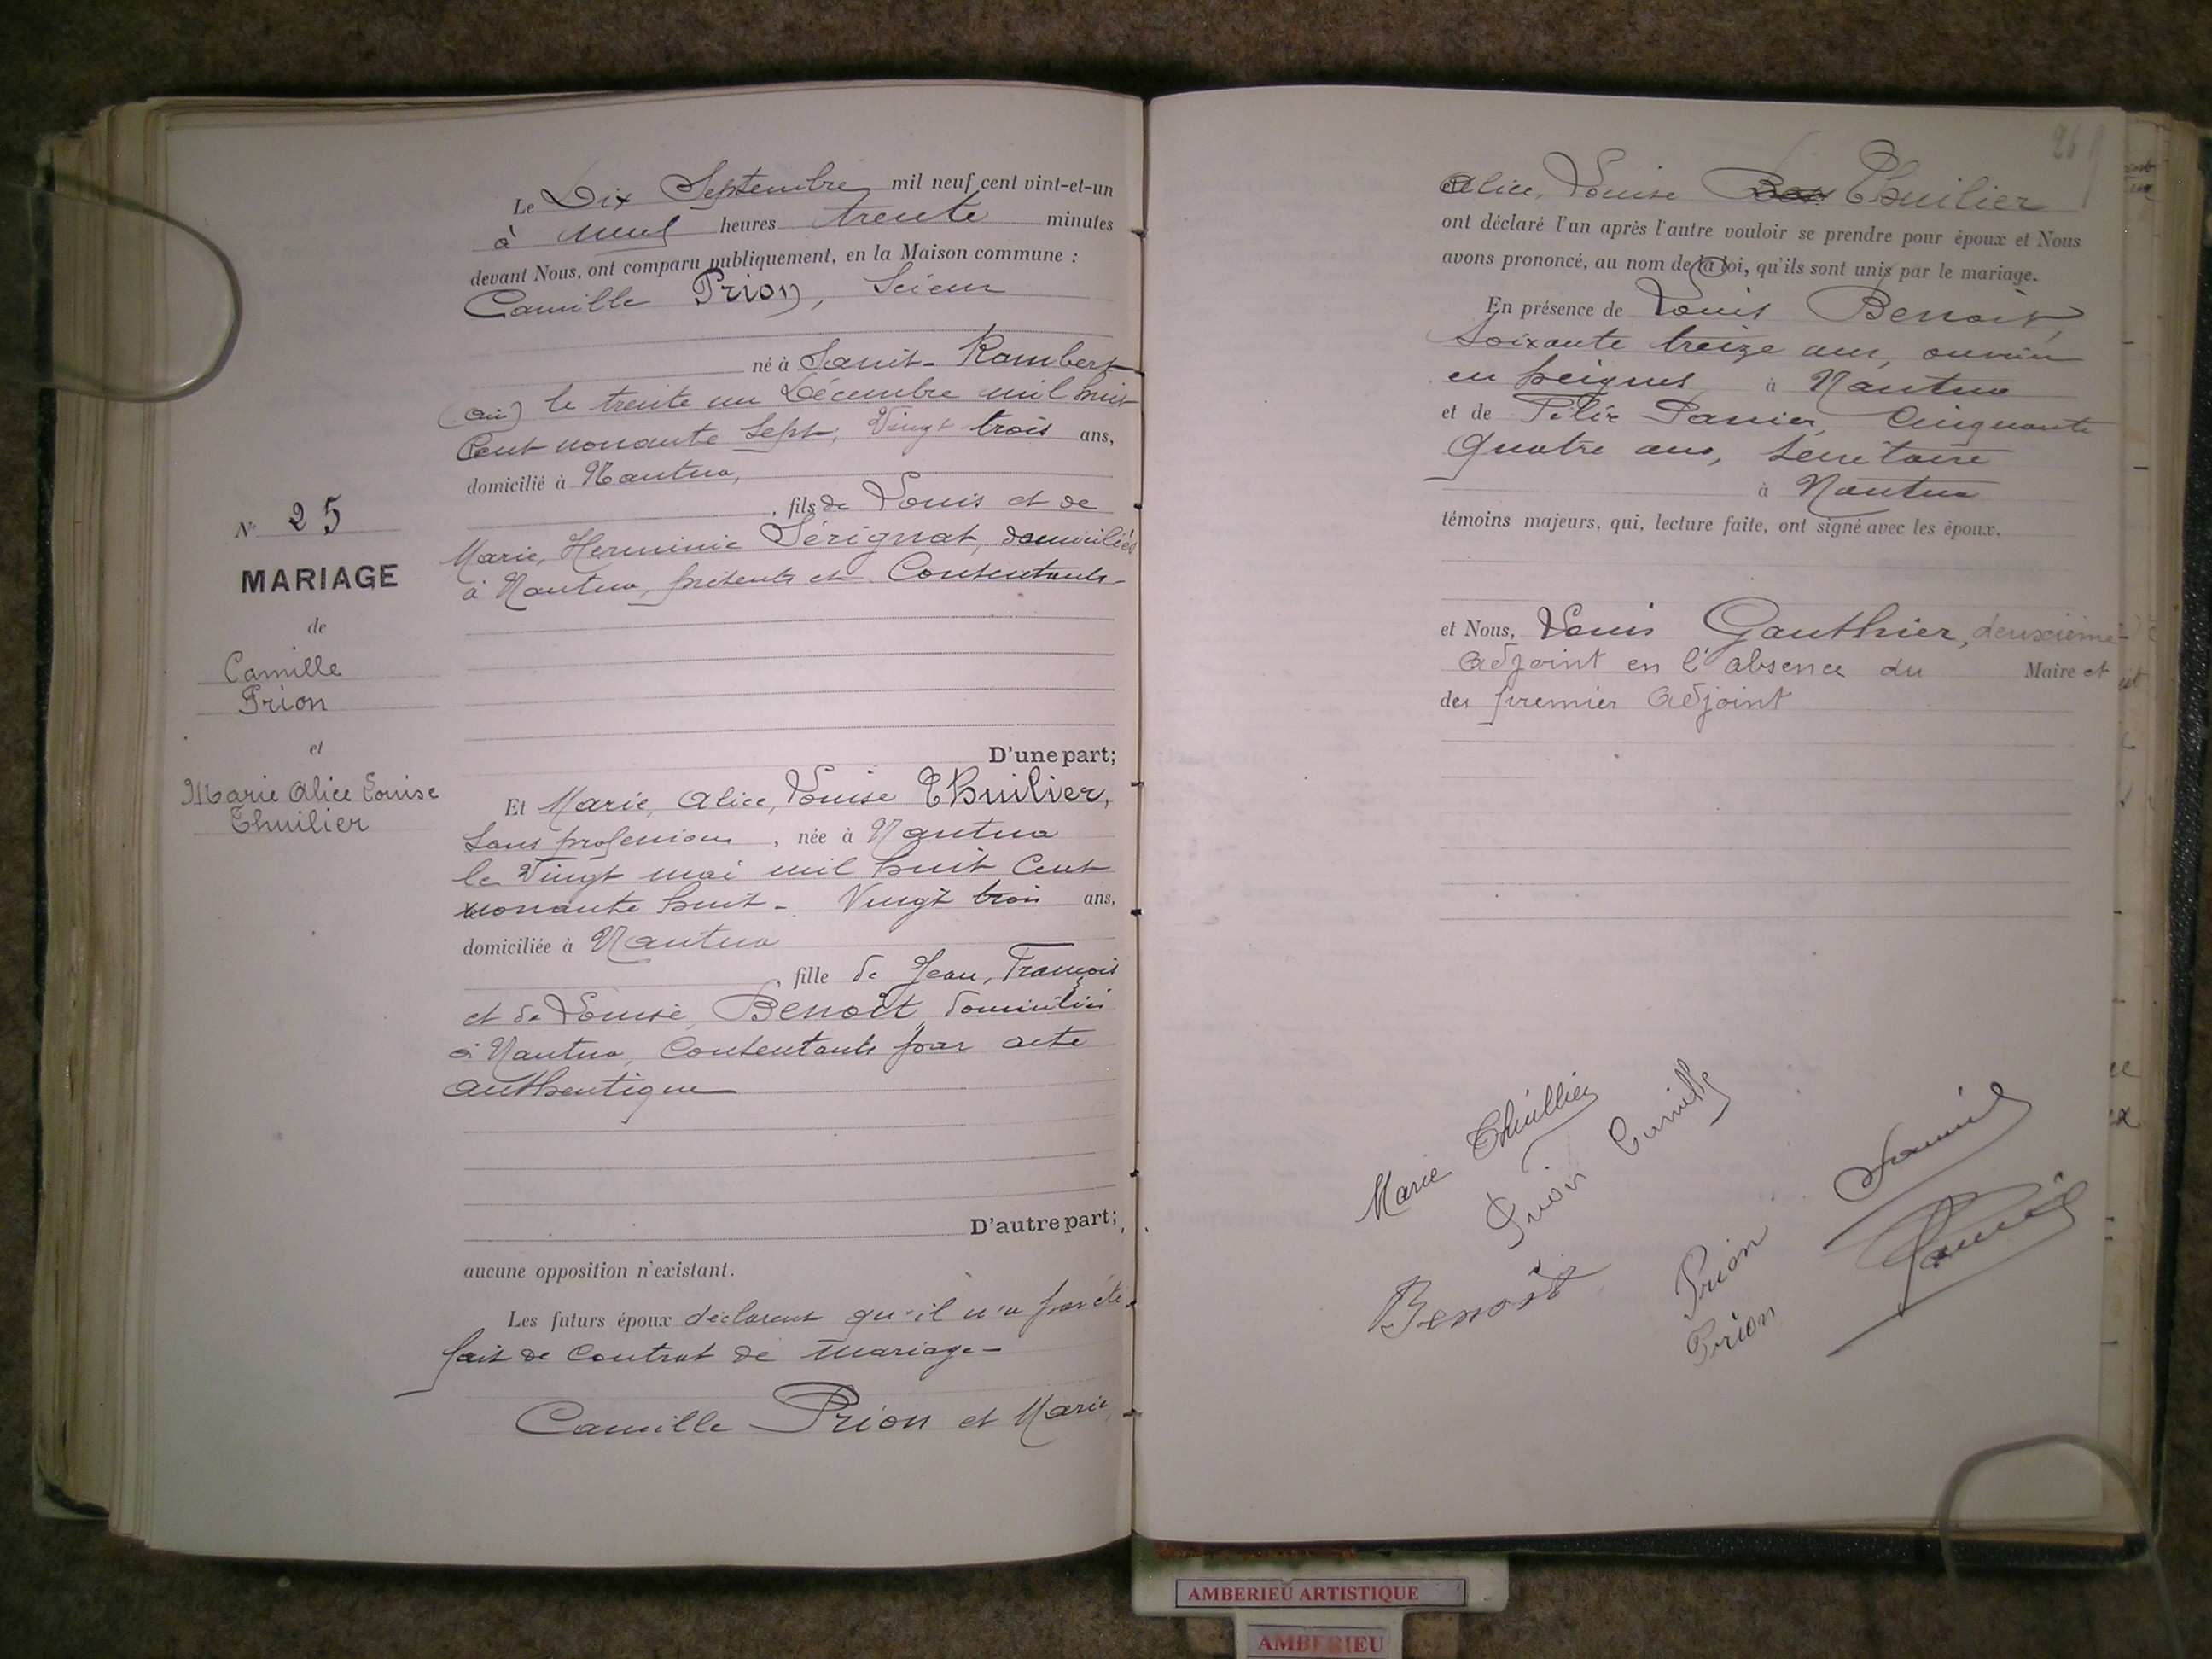 N° 25
MARIAGE
de
Camille
Prion
et
Marie Alice Louise
Thuilier
Le Dix Septembre mil neuf cent vint-et-un
à neuf heures trente minutes
devant Nous, ont comparu publiquement, en la Maison commune :
Camille Prion, Scieur
né à Saint-Rambert
(Ain) le trente un Décembre mil huit
Cent nonante Sept, Vingt trois ans,
domicilié à Nantua,
, fils de Louis et de
Marie, Herminie Sérignat, domiciliés
à Nantua, présents et Consentants-
D'une part;
Et Marie, Alice, Louise Thuilier,
Sans profession, née à Nantua
le Vingt mai mil huit Cent
nonante huit - Vingt trois ans,
domiciliée à Nantua
, fille de Jean, François
et de Louise, Benoît, domiciliés
à Nantua, Consentants par acte
authentique
D'autre part;
aucune opposition n'existant.
Les futurs époux déclarent qu'il n'a pas été
fait de Contrat de Mariage-
Camille Prion et Marie,
26
Alice, Louise Thuilier
ont déclaré l'un après l'autre vouloir se prendre pour époux et Nous
avons prononcé, au nom de la loi, qu'ils sont unis par le mariage.
En présence de Louis Benoît,
Soixante treize ans, ouvrier
en peignes à Nantua
et de Panier, Cinquante
Quatre ans, Secrétaire
à Nantua
témoins majeurs, qui, lecture faite, ont signé avec les époux,
et Nous, Louis Gauthier, deuxième
Adjoint en l'absence du Maire et
des premier Adjoint
Marie Thuillier
Prion Camille
Benoît
Prion
Prion
AMBERIEU ARTISTIQUE
AMBERIEU